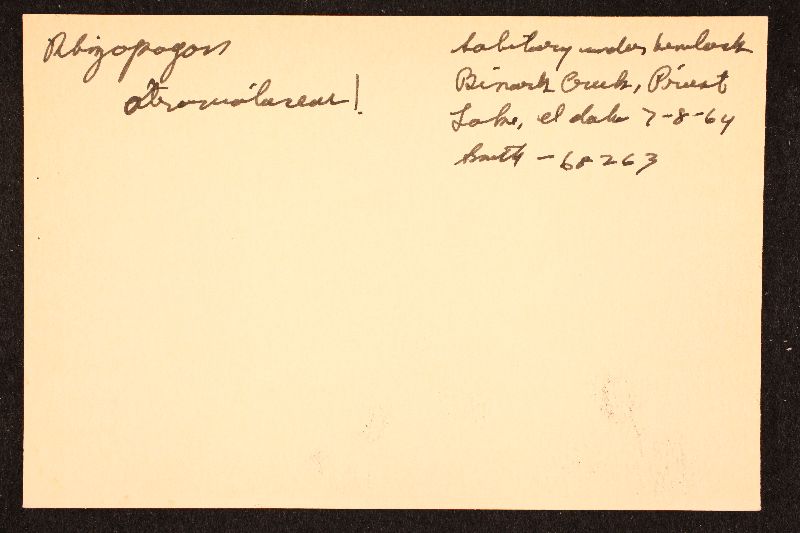 Rhizopogon
atroviolaceus!
Solitary under hemlock
Binark Creek, Priest
Lake, Idaho 7-8-64
Smith - 68263